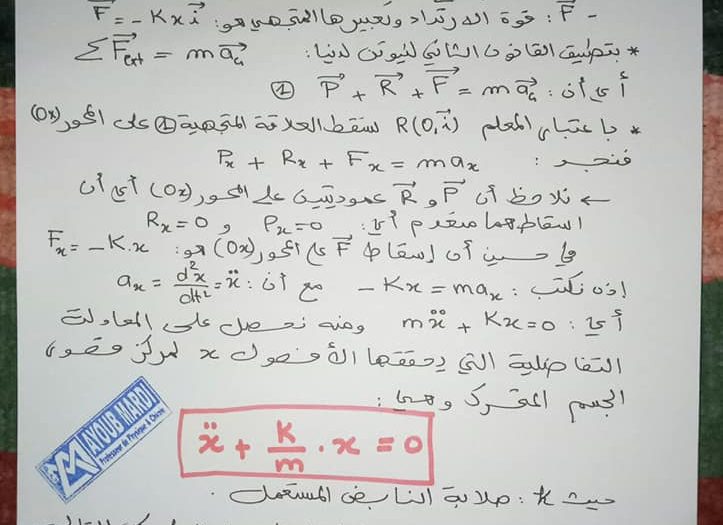 - F⃗ : قوة الارتداد وتعبيرها المتجهي هو: F⃗ = - K x i⃗
* بتطبيق القانون الثاني لنيوتن لدينا: ΣF⃗ext = m a⃗G
أي أن: P⃗ + R⃗ + F⃗ = m a⃗G ①
* باعتبار المعلم R(O,i⃗) نسقط العلاقة المتجهية ① على المحور (Ox)
فنجد : Px + Rx + Fx = m ax
← نلاحظ أن P⃗ و R⃗ عموديتين على المحور (Ox) أي أن
اسقاطهما منعدم أي: Px = 0 و Rx = 0
في حين أن إسقاط F⃗ على المحور (Ox) هو: Fx = - K.x
إذن نكتب : - Kx = m ax مع أن : ax = d²x/dt² = ẍ
أي : mẍ + Kx = 0 ومنه نحصل على المعادلة
التفاضلية التي يحققها الأفصول x لمركز قصور
الجسم المتحرك وهي :
ẍ + K/m . x = 0
AYOUB MARDI
Professeur de Physique & Chimie
حيث K : صلابة النابض المستعمل .